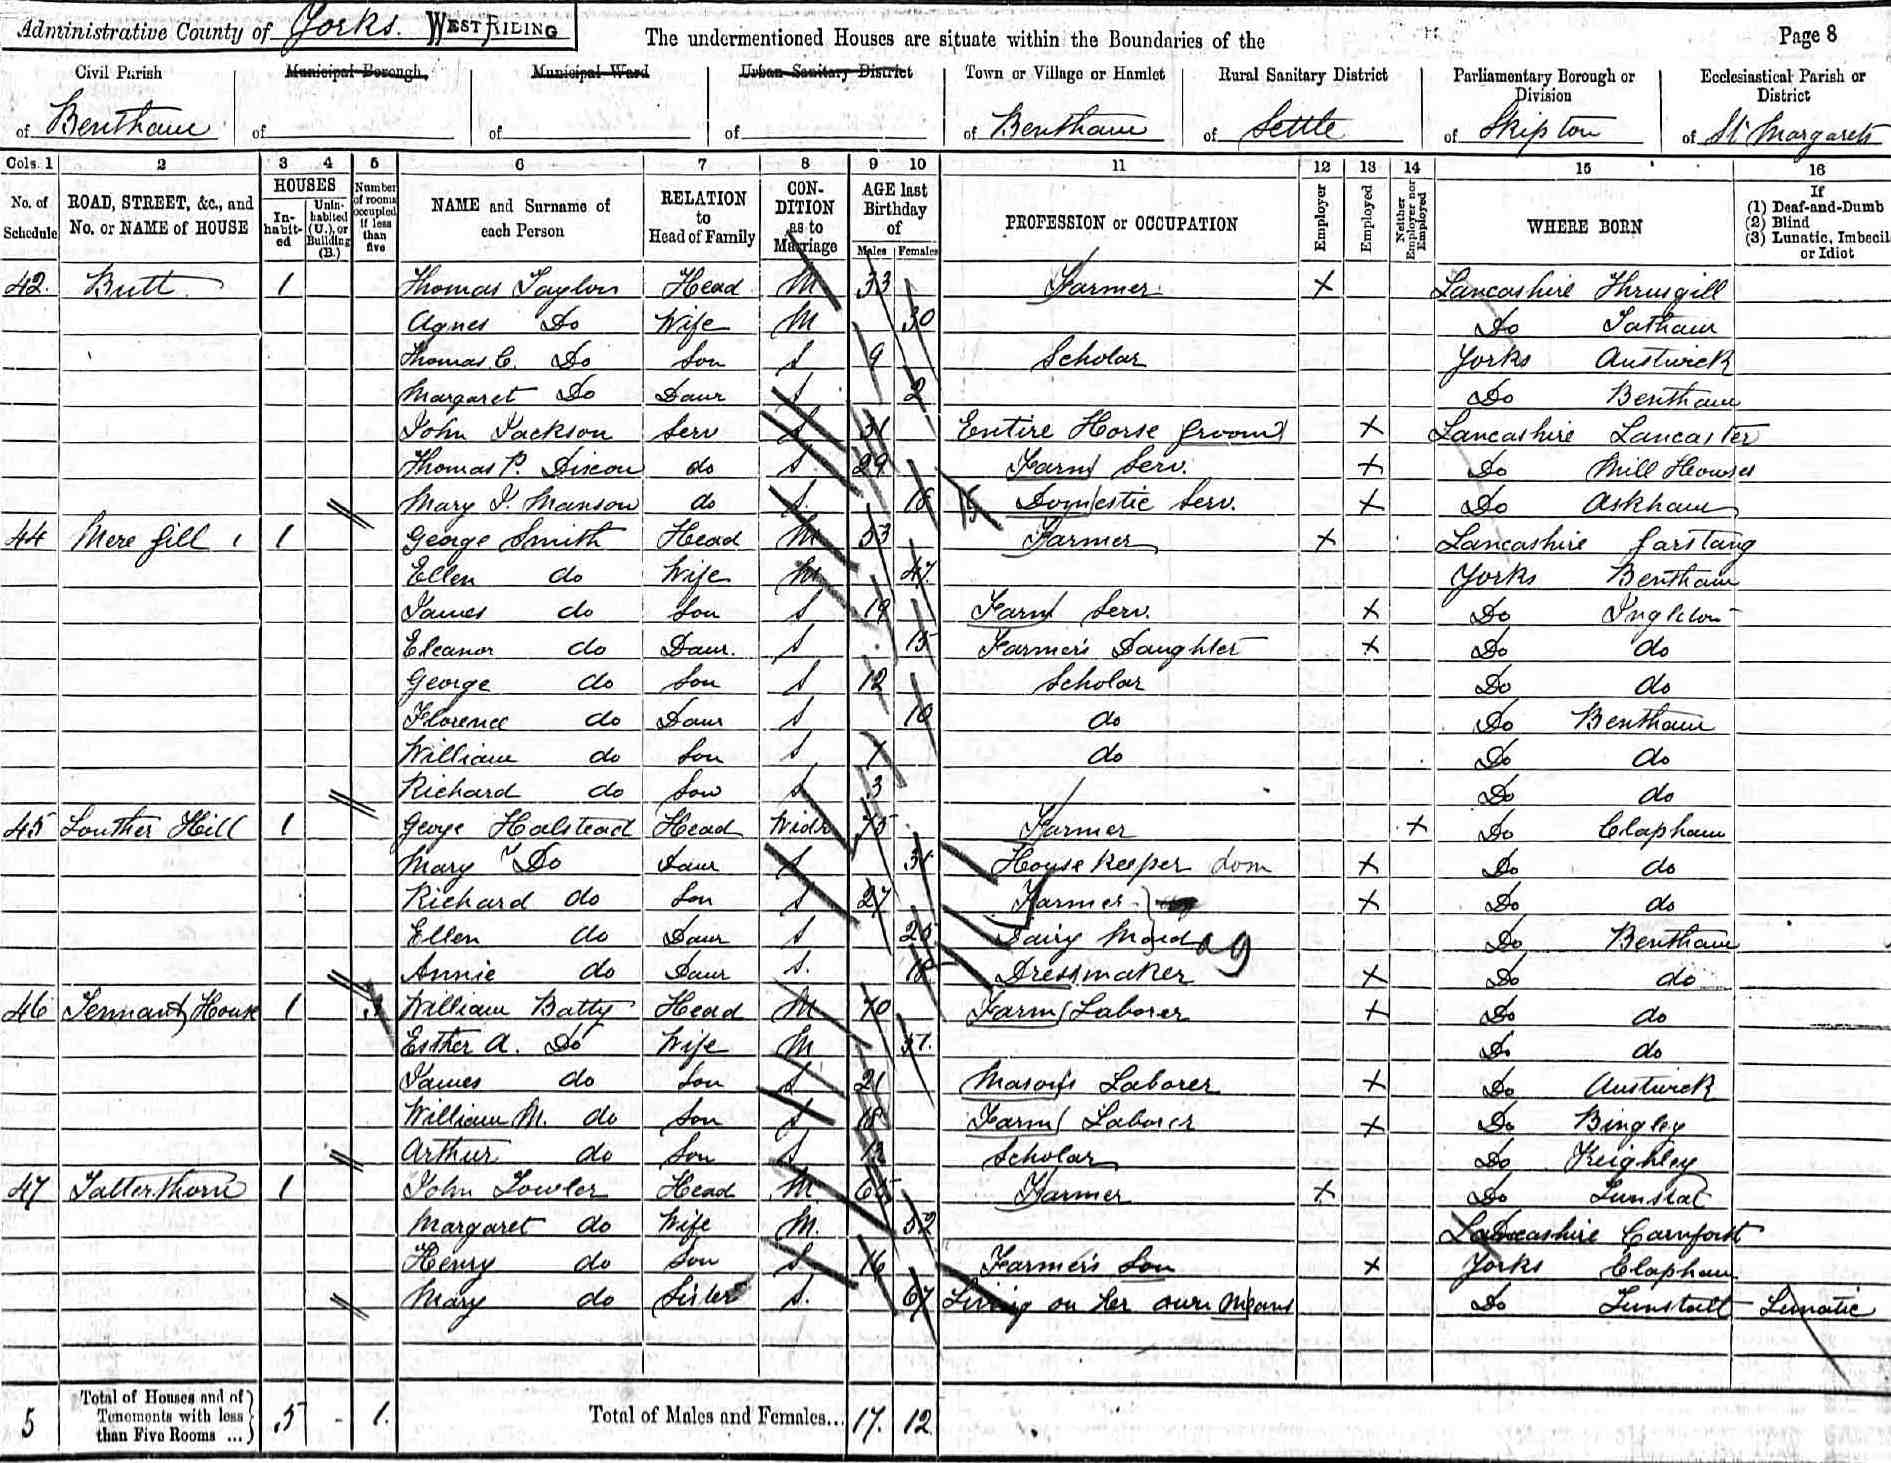 Administrative County of Yorks. WEST RIDING
The undermentioned Houses are situate within the Boundaries of the
Page 8
Civil Parish of Bentham
Municipal Borough, of
Municipal Ward of
Urban Sanitary District of
Town or Village or Hamlet of Bentham
Rural Sanitary District of Settle
Parliamentary Borough or Division of Skipton
Ecclesiastical Parish or District of St Margarets
Cols. 1 2 3 4 5 6 7 8 9 10 11 12 13 14 15 16
No. of Schedule
ROAD, STREET, &c., and No. or NAME of HOUSE
HOUSES
In-habit-ed
Unin-habited (U.), or Building (B.)
Number of rooms occupied if less than five
NAME and Surname of each Person
RELATION to Head of Family
CON-DITION as to Marriage
AGE last Birthday of
Males Females
PROFESSION or OCCUPATION
Employer
Employed
Neither Employer nor Employed
WHERE BORN
If
(1) Deaf-and-Dumb
(2) Blind
(3) Lunatic, Imbecil
or Idiot
42. Butt 1 Thomas Taylor Head M 33 Farmer X Lancashire Thrusgill
Agnes Do Wife M 30 Do Tatham
Thomas C. Do Son S 9 Scholar Yorks Austwick
Margaret Do Daur S 2 Do Bentham
John Jackson Serv S 31 Entire Horse Groom X Lancashire Lancaster
Thomas P. Dixon do S. 29 Farm Serv. X Do Mill Howses
Mary J. Manson do S. 18 Domestic Serv. X Do Askham
44 Mere Gill 1 George Smith Head M 53 Farmer X Lancashire Garstang
Ellen do Wife M 47. Yorks Bentham
James do Son S 19 Farm Serv. X Do Ingleton
Eleanor do Daur. S 15 Farmer's Daughter X Do do
George do Son S 12 Scholar Do do
Florence do Daur S 10 do Do Bentham
William do Son S 7 do Do do
Richard do Son S 3 Do do
45 Louther Hill 1 George Halstead Head Widr 75 Farmer X Do Clapham
Mary J Do Daur S 31 House keeper dom X Do do
Richard do Son S 27 Farmer X Do do
Ellen do Daur S Dairy Maid ag Do Bentham
Annie do Daur S. 18 Dressmaker X Do do
46 Tennant House 1 William Batty Head M 70 Farm Laborer X Do do
Esther A. Do Wife M 57. Do do
James do Son S 21 Mason's Laborer X Do Austwick
William M. do Son S 18 Farm Laborer X Do Bingley
Arthur do Son S Scholar Do Keighley
47 Tatterthorn 1 John Towler Head M. 65 Farmer X Do Tunstal
Margaret do Wife M. 52 Lancashire Carnforth
Henry do Son S 16 Farmer's Son X Yorks Clapham
Mary do Sister S. 67 Living on her own Means Do Tunstall Lunatic
5 Total of Houses and of Tenements with less than Five Rooms ... 5 - 1. Total of Males and Females... 17. 12